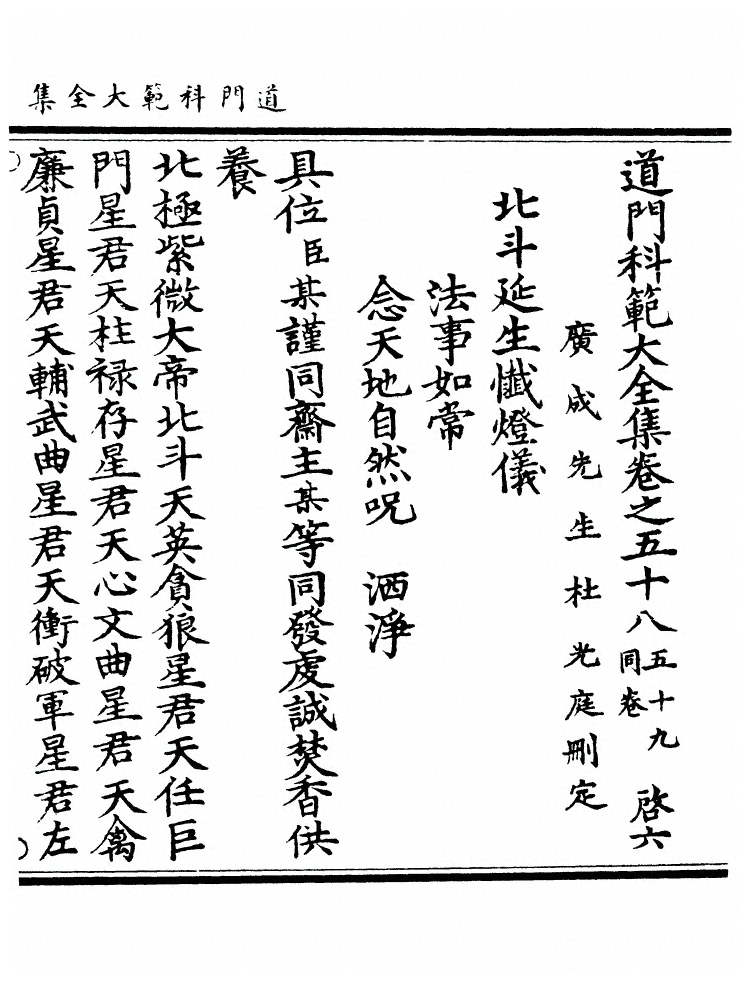 道門科範大全集
道門科範大全集卷之五十八五十九同卷 啓六
廣成先生杜光庭刪定
北斗延生懺燈儀
法事如常
念天地自然呪 洒淨
具位臣某謹同齋主某等同發虔誠焚香供
養
北極紫微大帝北斗天英貪狼星君天任巨
門星君天柱禄存星君天心文曲星君天禽
廉貞星君天輔武曲星君天衝破軍星君左